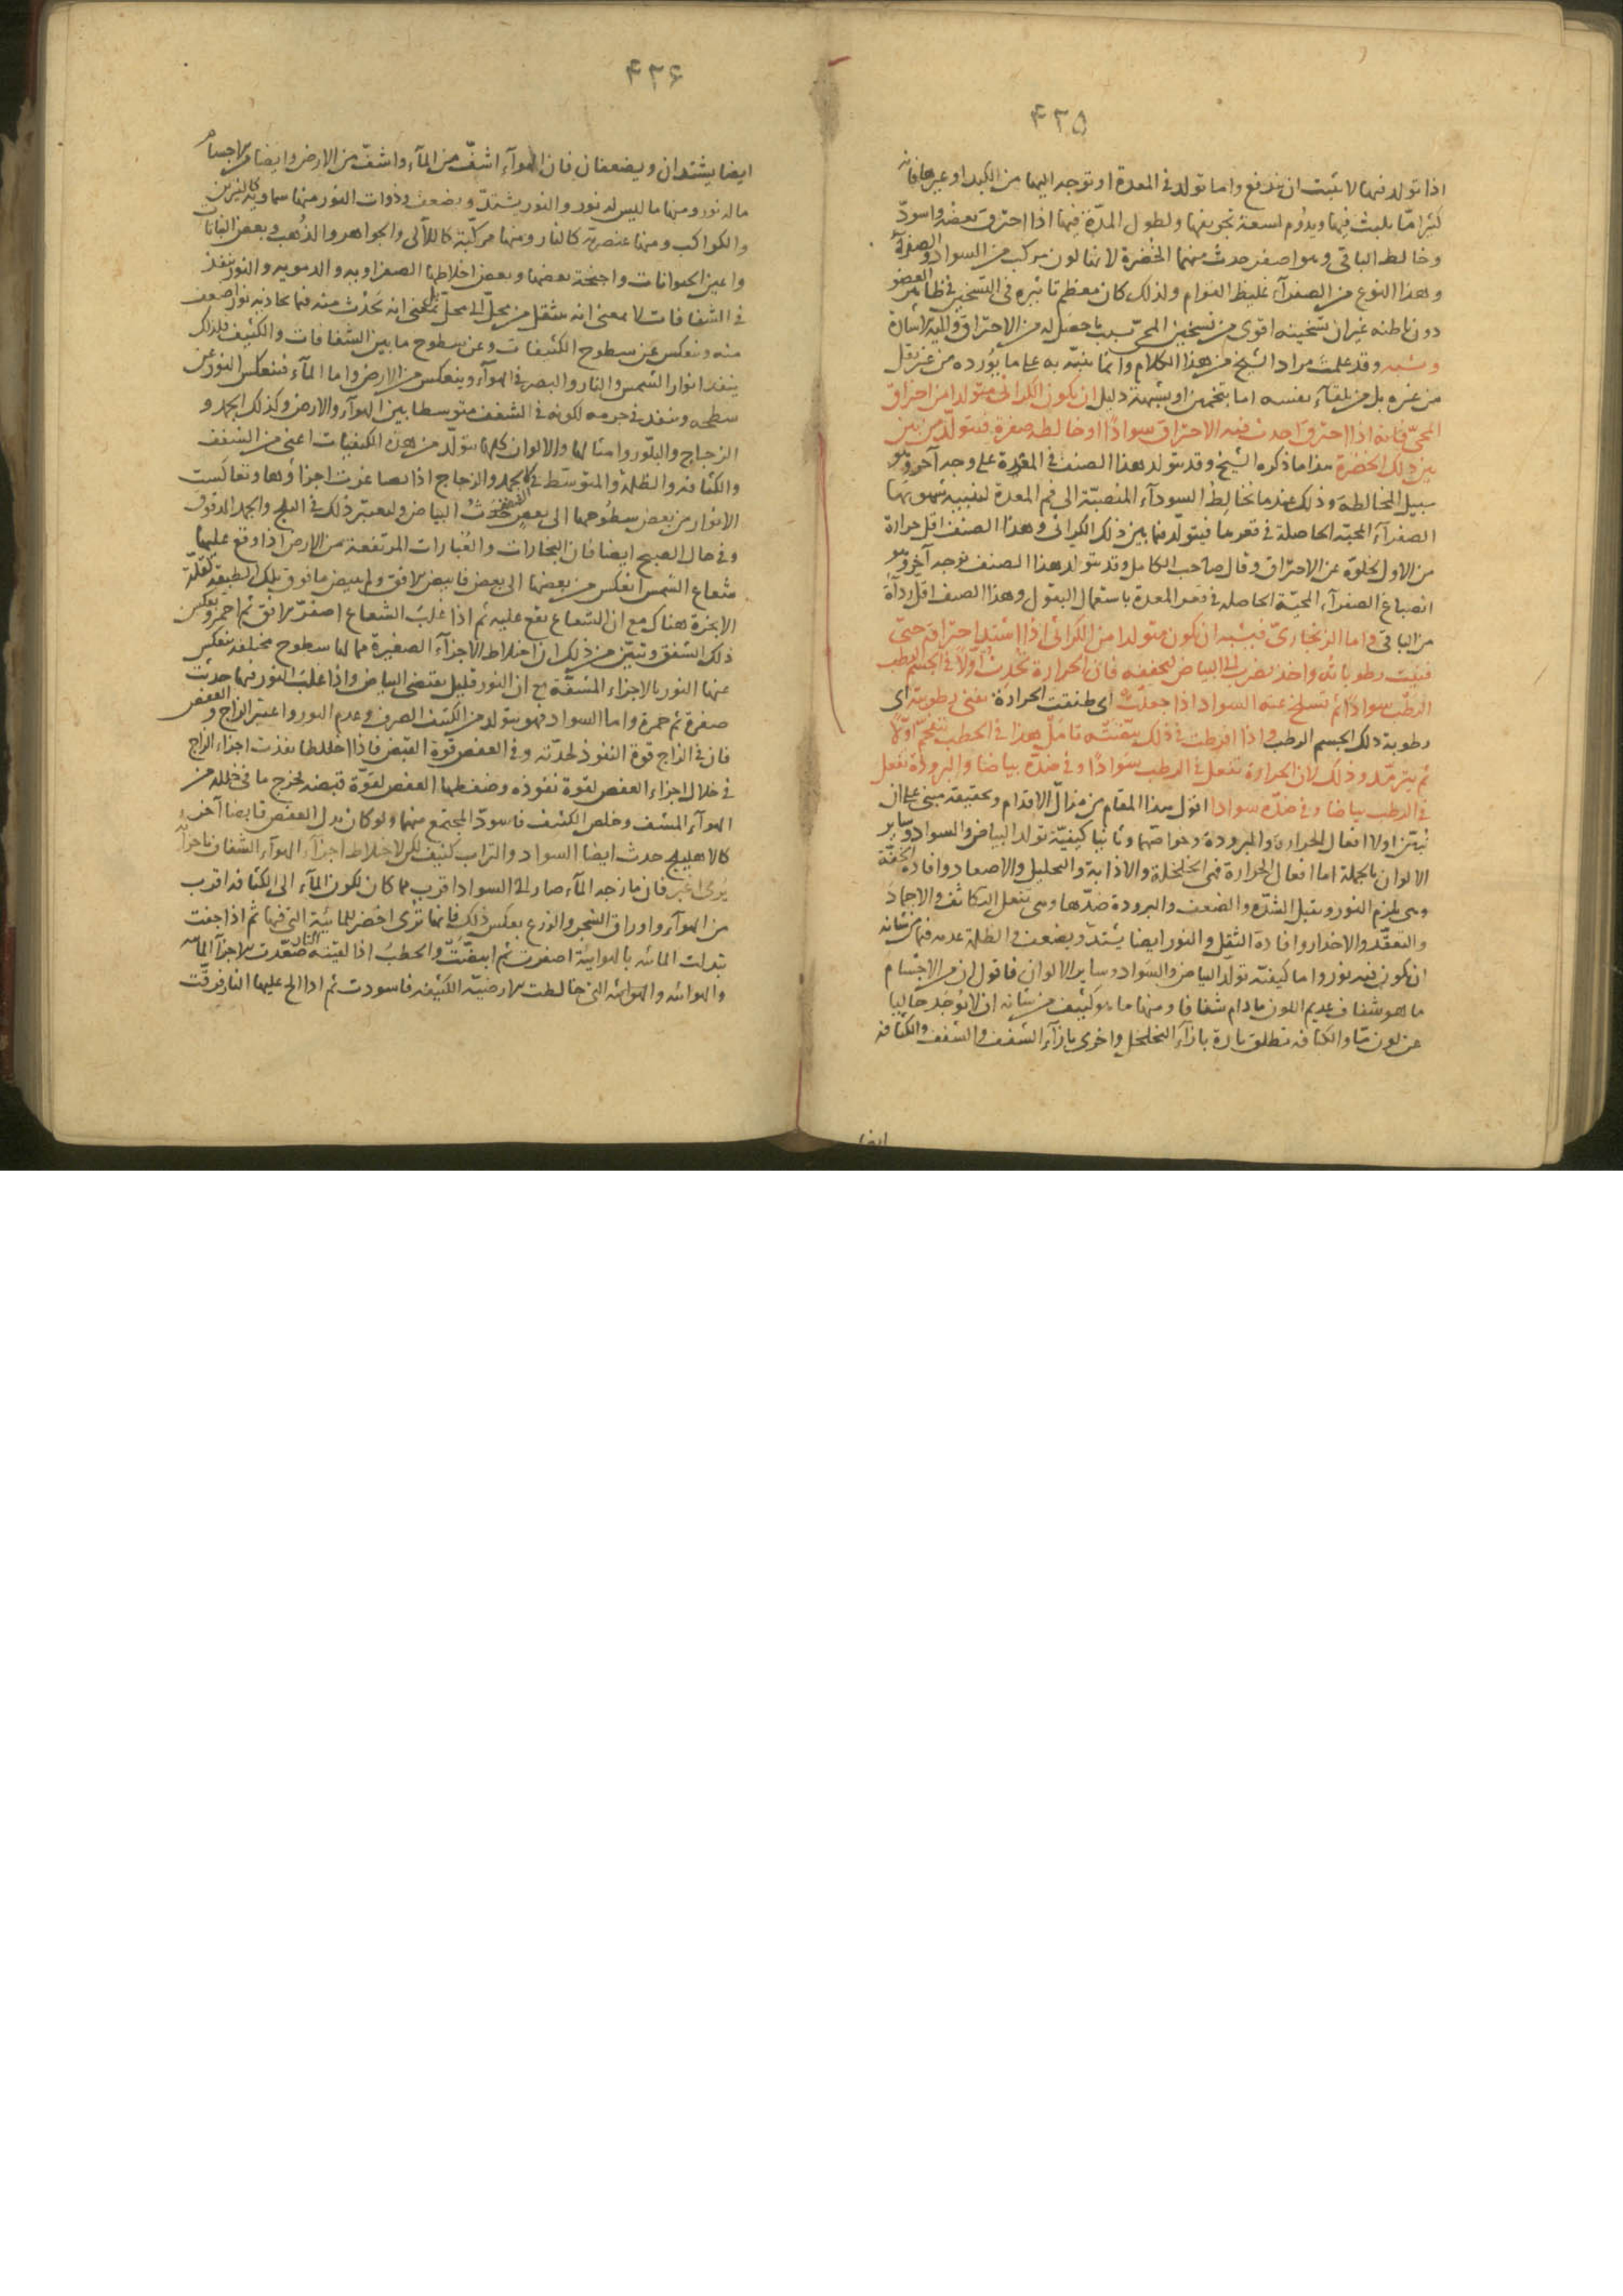 ۴۳۵
اذا تولد فيها لا يلبث ان يندفع واما تولد فى المعدة او توجه اليها من الكبد او غيرها فانه
كثيرا ما يلبث فيها ويدوم لسعة تجويفها ولطول المدة فيها اذا احترق بعضه واسود
وخالط الباقى وهو اصفر حدث منهما الخضرة لانها لون مركب من السواد والصفرة
وهذا النوع من الصفرآء غليظ القوام ولذلك كان معظم تاثيره فى التسخين فى ظاهر العضو
دون باطنه غير ان تسخينه اقوى من تسخين المحى بسبب ما حصل له من الاحتراق واليه اشار
وقد علمت مراد الشيخ من هذا الكلام وانما ينبه به على ما يورده من غير نقل
من غيره بل من تلقآء نفسه اما بتخمين او بشبهة دليل ان يكون الكراثى متولدا من احتراق
المحى فانه اذا احترق احدث فيه الاحتراق سوادا وخالطه صفرة فتولد من بين
بين ذلك الخضرة هذا ما ذكره الشيخ وقد يتولد هذا الصنف فى المعدة على وجه آخر وهو
سبيل المخالطة وذلك عندما تخالط السودآء المنصبة الى فم المعدة لتنبيه شهوتها
الصفرآء المحية الحاصلة فى قعرها فيتولد فيما بين ذلك الكراثى وهذا الصنف اقل حرارة
من الاول لخلوه عن الاحتراق وقال صاحب الكامل وقد يتولد هذا الصنف بوجه آخر وهو
انصباغ الصفرآء المحية الحاصله فى قعر المعدة باستعمال البقول وهذا الصنف اقل ردآة
من الباقى واما الزنجارى فيشبه ان يكون متولدا من الكراثى اذا اشتد احتراقه حتى
فنيت رطوباته واخذ يضرب الى البياض لتجففه فان الحرارة تحدث اولا فى الجسم الرطب
الرطب سوادا ثم تسلخ عنه السواد اذا جعلت اى طفقت الحرارة تفنى رطوبته اى
رطوبة ذلك الجسم الرطب واذا افرطت فى ذلك بيضته تامل هذا فى الحطب يتفحم اولا
ثم يترمد وذلك لان الحرارة تفعل فى الرطب سوادا وفى ضده بياضا والبرودة تفعل
فى الرطب بياضا وفى ضده سوادا اقول هذا المقام من مزال الاقدام وتحقيقه مبنى على ان
نبين اولا افعال الحرارة والبرودة وخواصهما وثانيا كيفية تولد البياض والسواد وساير
الالوان بالجملة اما افعال الحرارة فهى الخلخلة والاذابة والتحليل والاصعاد وافادة الخفة
وهى تلزم النور وتقبل الشده والضعف والبرودة ضدها وهى تفعل التكاثف والاجماد
والتعقد والاحدار وافادة الثقل والنور ايضا يشتد ويضعف والظلمة عدمه فيما من شانه
ان يكون فيه نور واما كيفية تولد البياض والسواد وساير الالوان فاقول ان من الاجسام
ما هو شفاف عديم اللون ما دام شفافا ومنها ما هو كثيف من شانه ان لا يوجد خاليا
عن لون ما والكثافه تطلق تارة بازآء التخلخل واخرى بازآء الشفف والشفف والكثافه
ايضا
۴۳۶
ايضا يشتدان ويضعفان فان الهوآء اشف من المآء واشف من الارض وايضا من الاجسام
ما له نور ومنها ما ليس له نور والنور يشتد ويضعف وذوات النور منها سماوية كالنيرين
والكواكب ومنها عنصرية كالنار ومنها مركبة كاللآلى والجواهر والذهب وبعض النباتات
واعين الحيوانات واجنحة بعضها وبعض اخلاطها الصفراويه والدمويه والنور ينفذ
فى الشفافات لا بمعنى انه ينتقل من محل الى محل بل بمعنى انه يحدث منه فيما يحاذيه نور اضعف
منه وينعكس عن سطوح الكثيفات وعن سطوح ما بين الشفافات والكثيف فلذلك
ينفذ انوار الشمس والنار والبصر فى الهوآء وينعكس من الارض واما المآء فينعكس النور عن
سطحه وينفذ فى جرمه لكونه فى الشفف متوسطا بين الهوآء والارض وكذلك الجمد و
الزجاج والبلور وامثالها والالوان كلها تتولد من هذه الكيفيات اعنى من الشفف
والكثافة والظلمة والمتوسط فى كالجمد والزجاج اذا تصاغرت اجزاؤها وتعاكست
الانوار من بعض سطوحها الى بعض حدث البياض وليعتبر ذلك فى الثلج والجمد المدقوق
وفى حال الصبح ايضا فان البخارات والغبارات المرتفعة من الارض اذا وقع عليها
شعاع الشمس انعكس من بعضها الى بعض فابيض الافق ولم يبيض ما فوق تلك الطبقة لقلة
الابخرة هناك مع ان الشعاع يقع عليه ثم اذا غلب الشعاع اصفر الافق ثم احمر وبعكس
ذلك الشفق وتبين من ذلك ان اختلاط الاجزآء الصغيرة مما لها سطوح مختلفة ينعكس
عنها النور بالاجزاء المشفة مع ان النور قليل يقتضى البياض واذا غلب النور فيها حدثت
صفرة ثم حمرة واما السواد فهو يتولد من الكثيف الصرف وعدم النور واعتبر الزاج والعفص
فان فى الزاج قوة النفوذ لحدته وفى العفص قوة القبض فاذا اختلطا نفذت اجزاء الزاج
فى خلال اجزاء العفص لقوة نفوذه وضغطها العفص لقوة قبضه فخرج ما فى خلله من
الهوآء المشف وخلص الكثيف فاسود المجتمع منهما ولو كان بدل العفص قابضا آخر
كالاهليلج حدث ايضا السواد والتراب كثيف لكن لاختلاط اجزآء الهوآء الشفاف باجزائه
يرى اغبر فان مازجه المآء صار الى السواد اقرب مما كان لكون المآء الى الكثافه اقرب
من الهوآء واوراق الشجر والزرع بعكس ذلك فانها ترى اخضر للمائية التى فيها ثم اذا جفت
تبدلت المائيه بالهوائية اصفرت ثم ابيضت والحطب اذا لقيته النار صعدت الاجزآء المائيه
والهوائيه التى خالطت الارضية الكثيفه فاسودت ثم اذا الح عليها النار فرقت